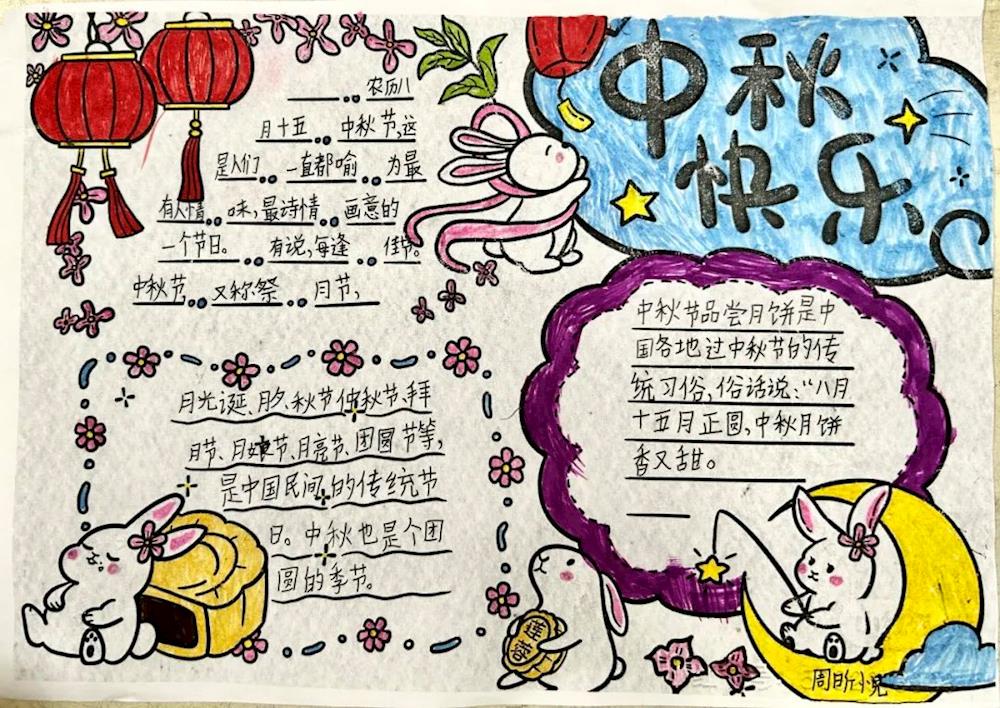 中秋
快乐
农历八
月十五 中秋节,这
是人们 一直都喻 为最
有人情 味,最诗情 画意的
一个节日。 有说,每逢 佳节。
中秋节 又称祭 月节,
月光诞、月夕、秋节、仲秋节、拜
月节、月娘节、月亮节、团圆节等,
是中国民间的传统节
日。中秋也是个团
圆的季节。
中秋节品尝月饼是中
国各地过中秋节的传
统习俗,俗话说:“八月
十五月正圆,中秋月饼
香又甜。
莲蓉